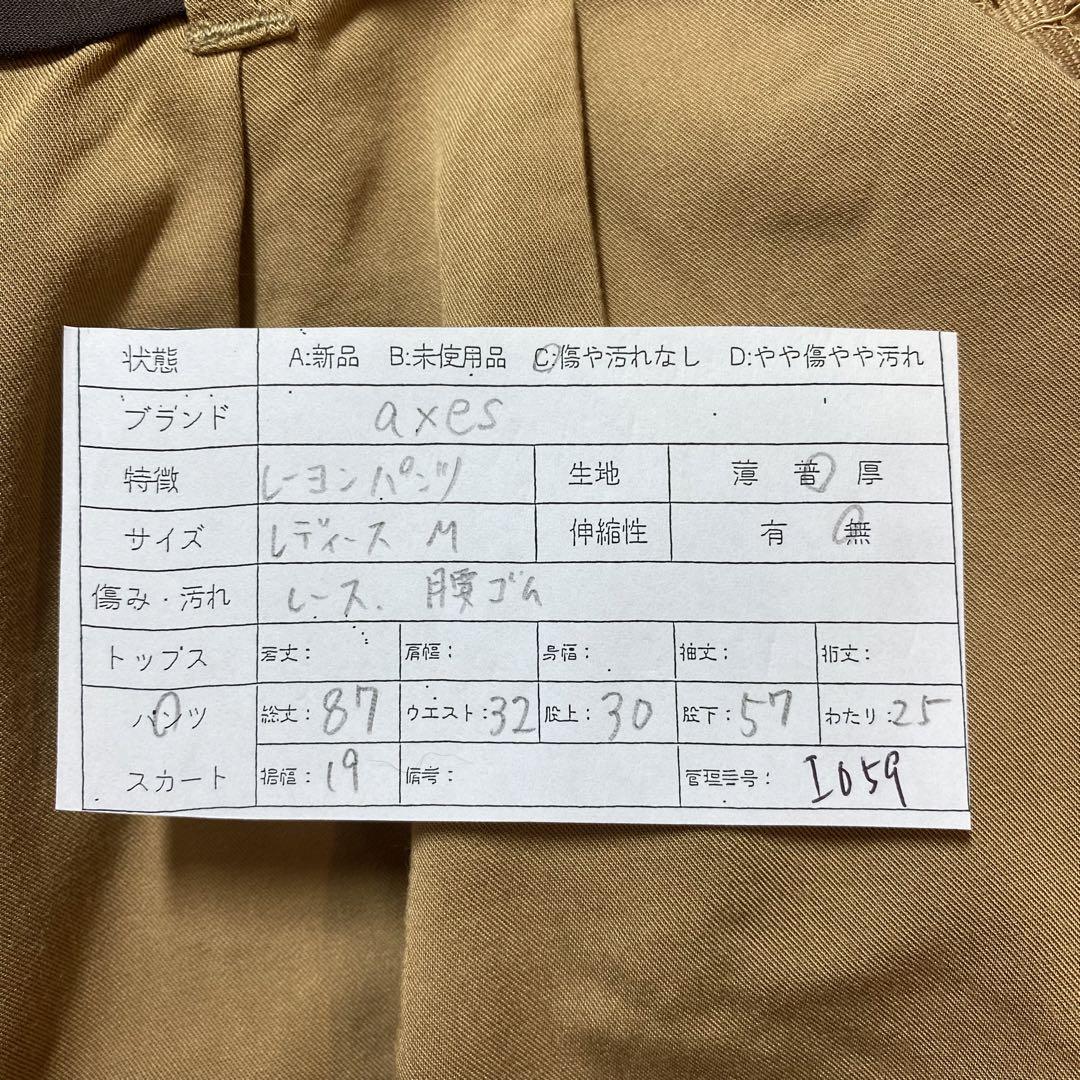 状態 A:新品 B:未使用品 C:傷や汚れなし D:やや傷やや汚れ
ブランド axes
特徴 レーヨンパンツ 生地 薄 普 厚
サイズ レディース M 伸縮性 有 無
傷み・汚れ レース. 腰ゴム
トップス 着丈: 肩幅: 身幅: 袖丈: 裄丈:
パンツ 総丈:87 ウエスト:32 股上:30 股下:57 わたり:25
スカート 裾幅:19 備考: 管理番号: I059